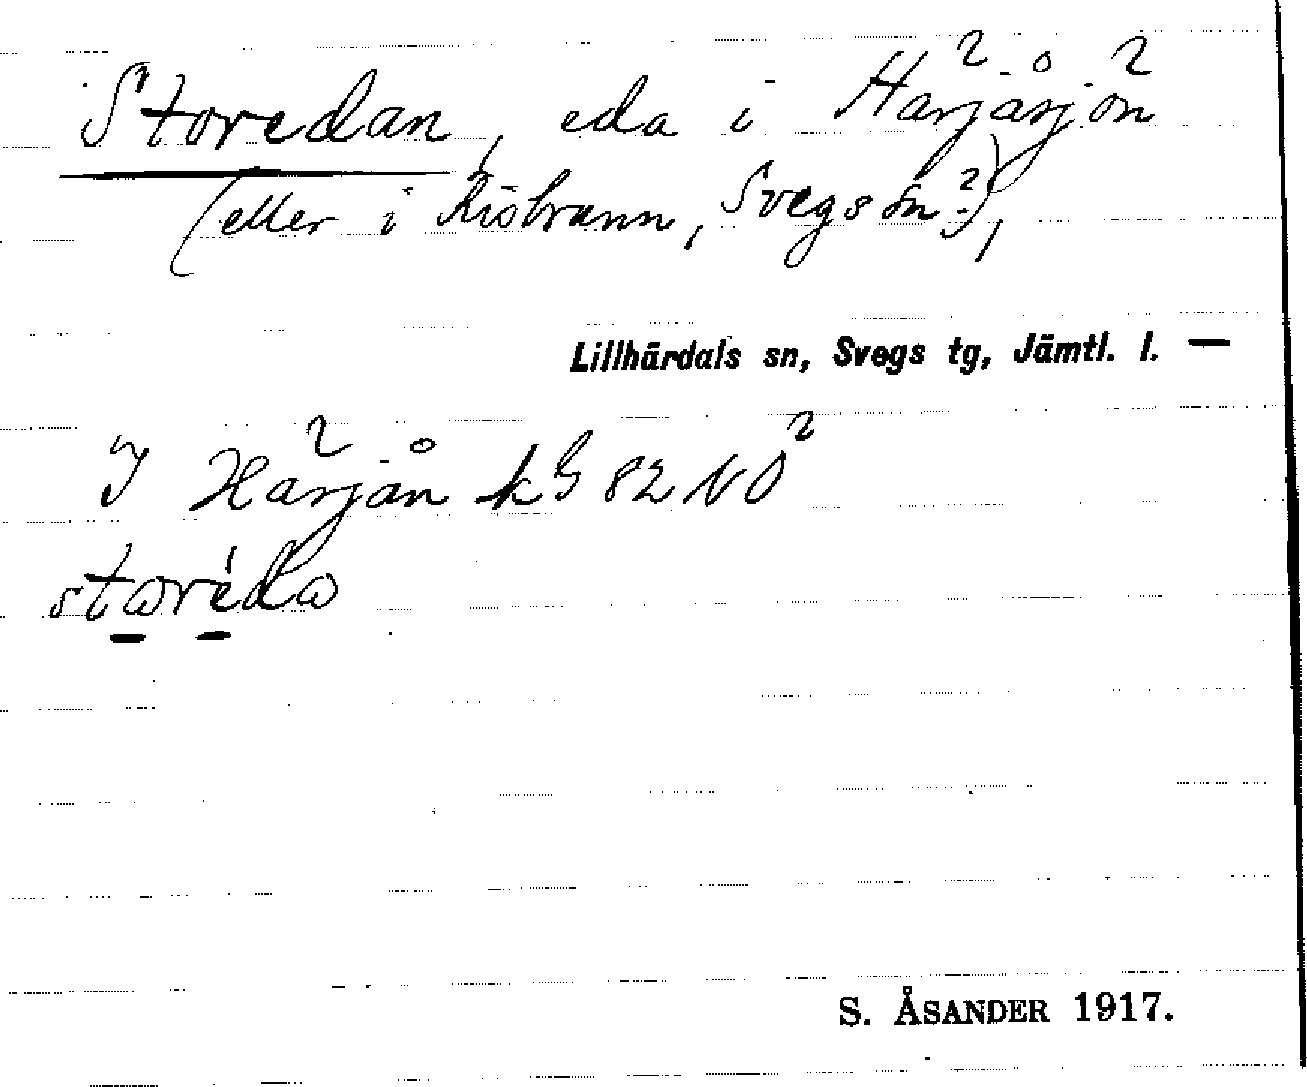 Storedan, eda i Härjåsjön
(eller i Risbrunn, Svegs sn?),
Lillhärdals sn, Svegs tg, Jämtl. l. —
I Härjån kG 82 NO²
storéda
S. ÅSANDER 1917.